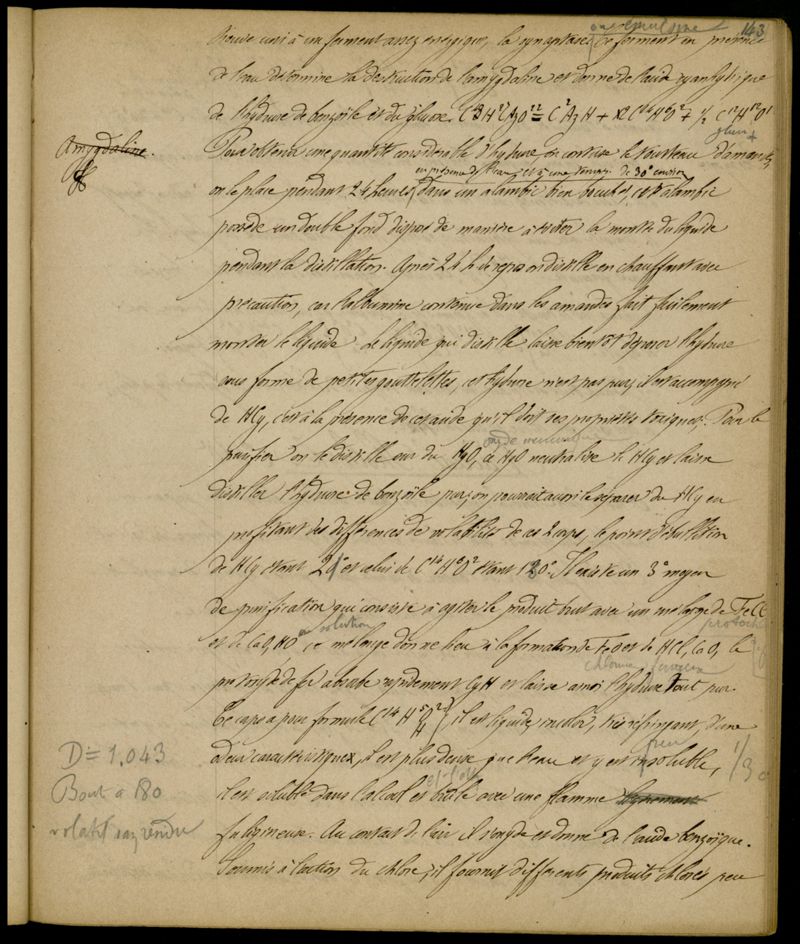 143
ou emulsine
trouve uni à un ferment assez énergique, la synaptase, ce ferment en présence
de l'eau détermine la destruction de l'amygdaline et donne de l'acide cyanhydrique
de l'hydrure de benzoïle et du glucose.
gluc
Amygdaline
Pour obtenir une quantité considérable d'hydrure on contuse le tourteau d'amandes,
en présence de l'eau et à une tempre de 30° environ
on le place pendant 24 heures dans un alambic bien bouché, cet alambic
possède un double fond disposé de manière à éviter la montée du liquide
pendant la distillation. Après 24 h de repos on distille en chauffant avec
précaution, car l'albumine contenue dans les amandes fait facilement
monter le liquide. Le liquide qui distille laisse bientôt déposer l'hydrure
sous forme de petites gouttelettes, cet hydrure n'est pas pur, il est accompagné
de HCy, c'est à la présence de cet acide qu'il doit ses propriétés toxiques. Pour le
oxyde mercure
purifier on le distille sur du HgO, ce HgO neutralise le HCy et laisse
distiller l'hydrure de benzoïle pur, on pourrait aussi le séparer du HCy en
profitant des différences de volatilité de ces 2 corps, le point d'ébullition
de HCy étant 2 ° et celui de C14H6O2 étant 180°. Il existe un 3e moyen
de purification qui consiste à agiter le produit brut avec un mélange de FeCl
en solution
protochl
et de CaO, HO ce mélange donne lieu à la formation de FeO et de HCl, CaO, le
chlorure
protoxyde de fer absorbe rapidement CyH et laisse ainsi l'hydrure tout pur.
Ce corps a pour formule C14H5O2 } il est liquide, incolor, très réfringent, d'une
H
D = 1,043
peu
1/30
odeur caractéristique, il est plus dense que l'eau et y est insoluble,
Bout à 180
il est soluble dans l'alcool et brûle avec une flamme
volatil sans résidu
fuligineuse. Au contact de l'air il s'oxyde et donne de l'acide benzoïque.
Soumis à l'action du chlore, il fournit différents produits chlorés peu